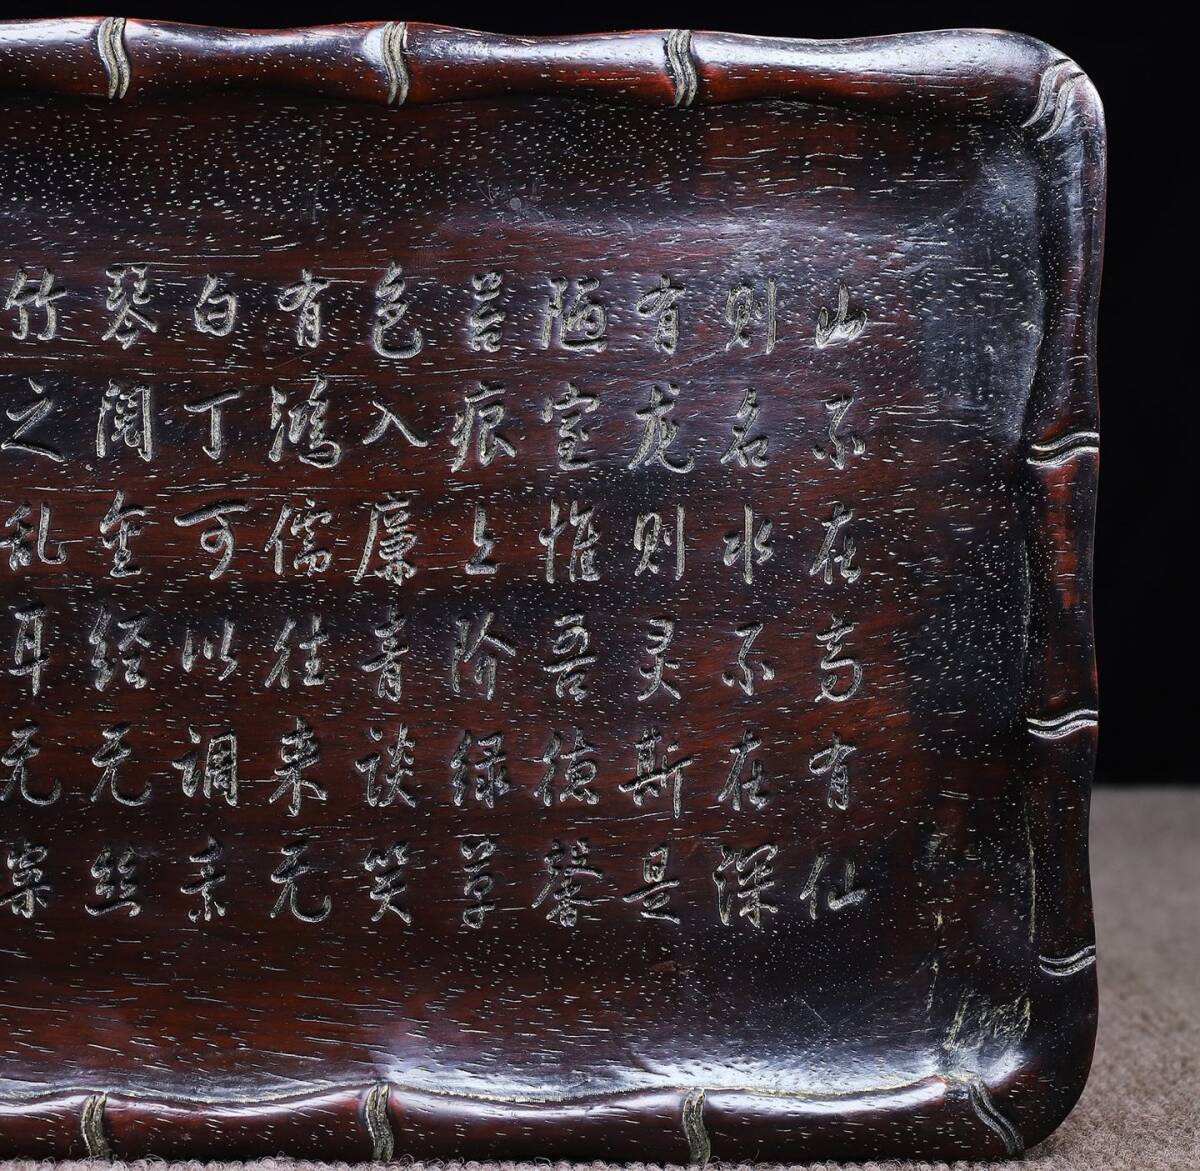 山不在高有仙
则名水不在深
有龙则灵斯是
陋室惟吾德馨
苔痕上阶绿草
色入廉青谈笑
有鸿儒往来无
白丁可以调素
琴阅金经无丝
竹之乱耳无案